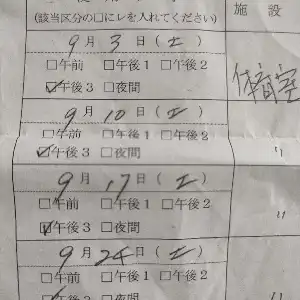 (該当区分の□にレを入れてください)
施 設
9月 3日(土)
□午前 □午後1 □午後2
☑午後3 □夜間
体育室
9月 10日(土)
□午前 □午後1 □午後2
☑午後3 □夜間
〃
9月 17日(土)
□午前 □午後1 □午後2
☑午後3 □夜間
〃
9月 24日(土)
□午前 □午後1 □午後2
☑午後3 □夜間
〃